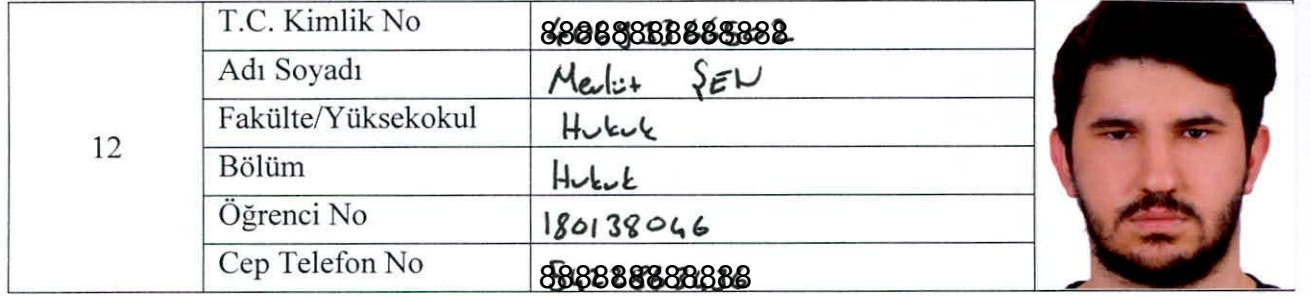 12
T.C. Kimlik No
Adı Soyadı Mevlüt ŞEN
Fakülte/Yüksekokul Hukuk
Bölüm Hukuk
Öğrenci No 180138046
Cep Telefon No